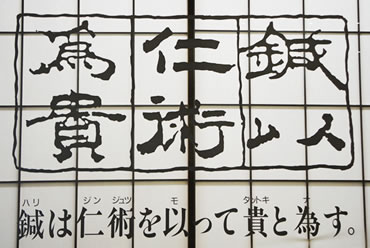 鍼以
仁術
為貴
ハリ ジン ジュツ モ タットキ ナ
鍼は仁術を以って貴と為す。